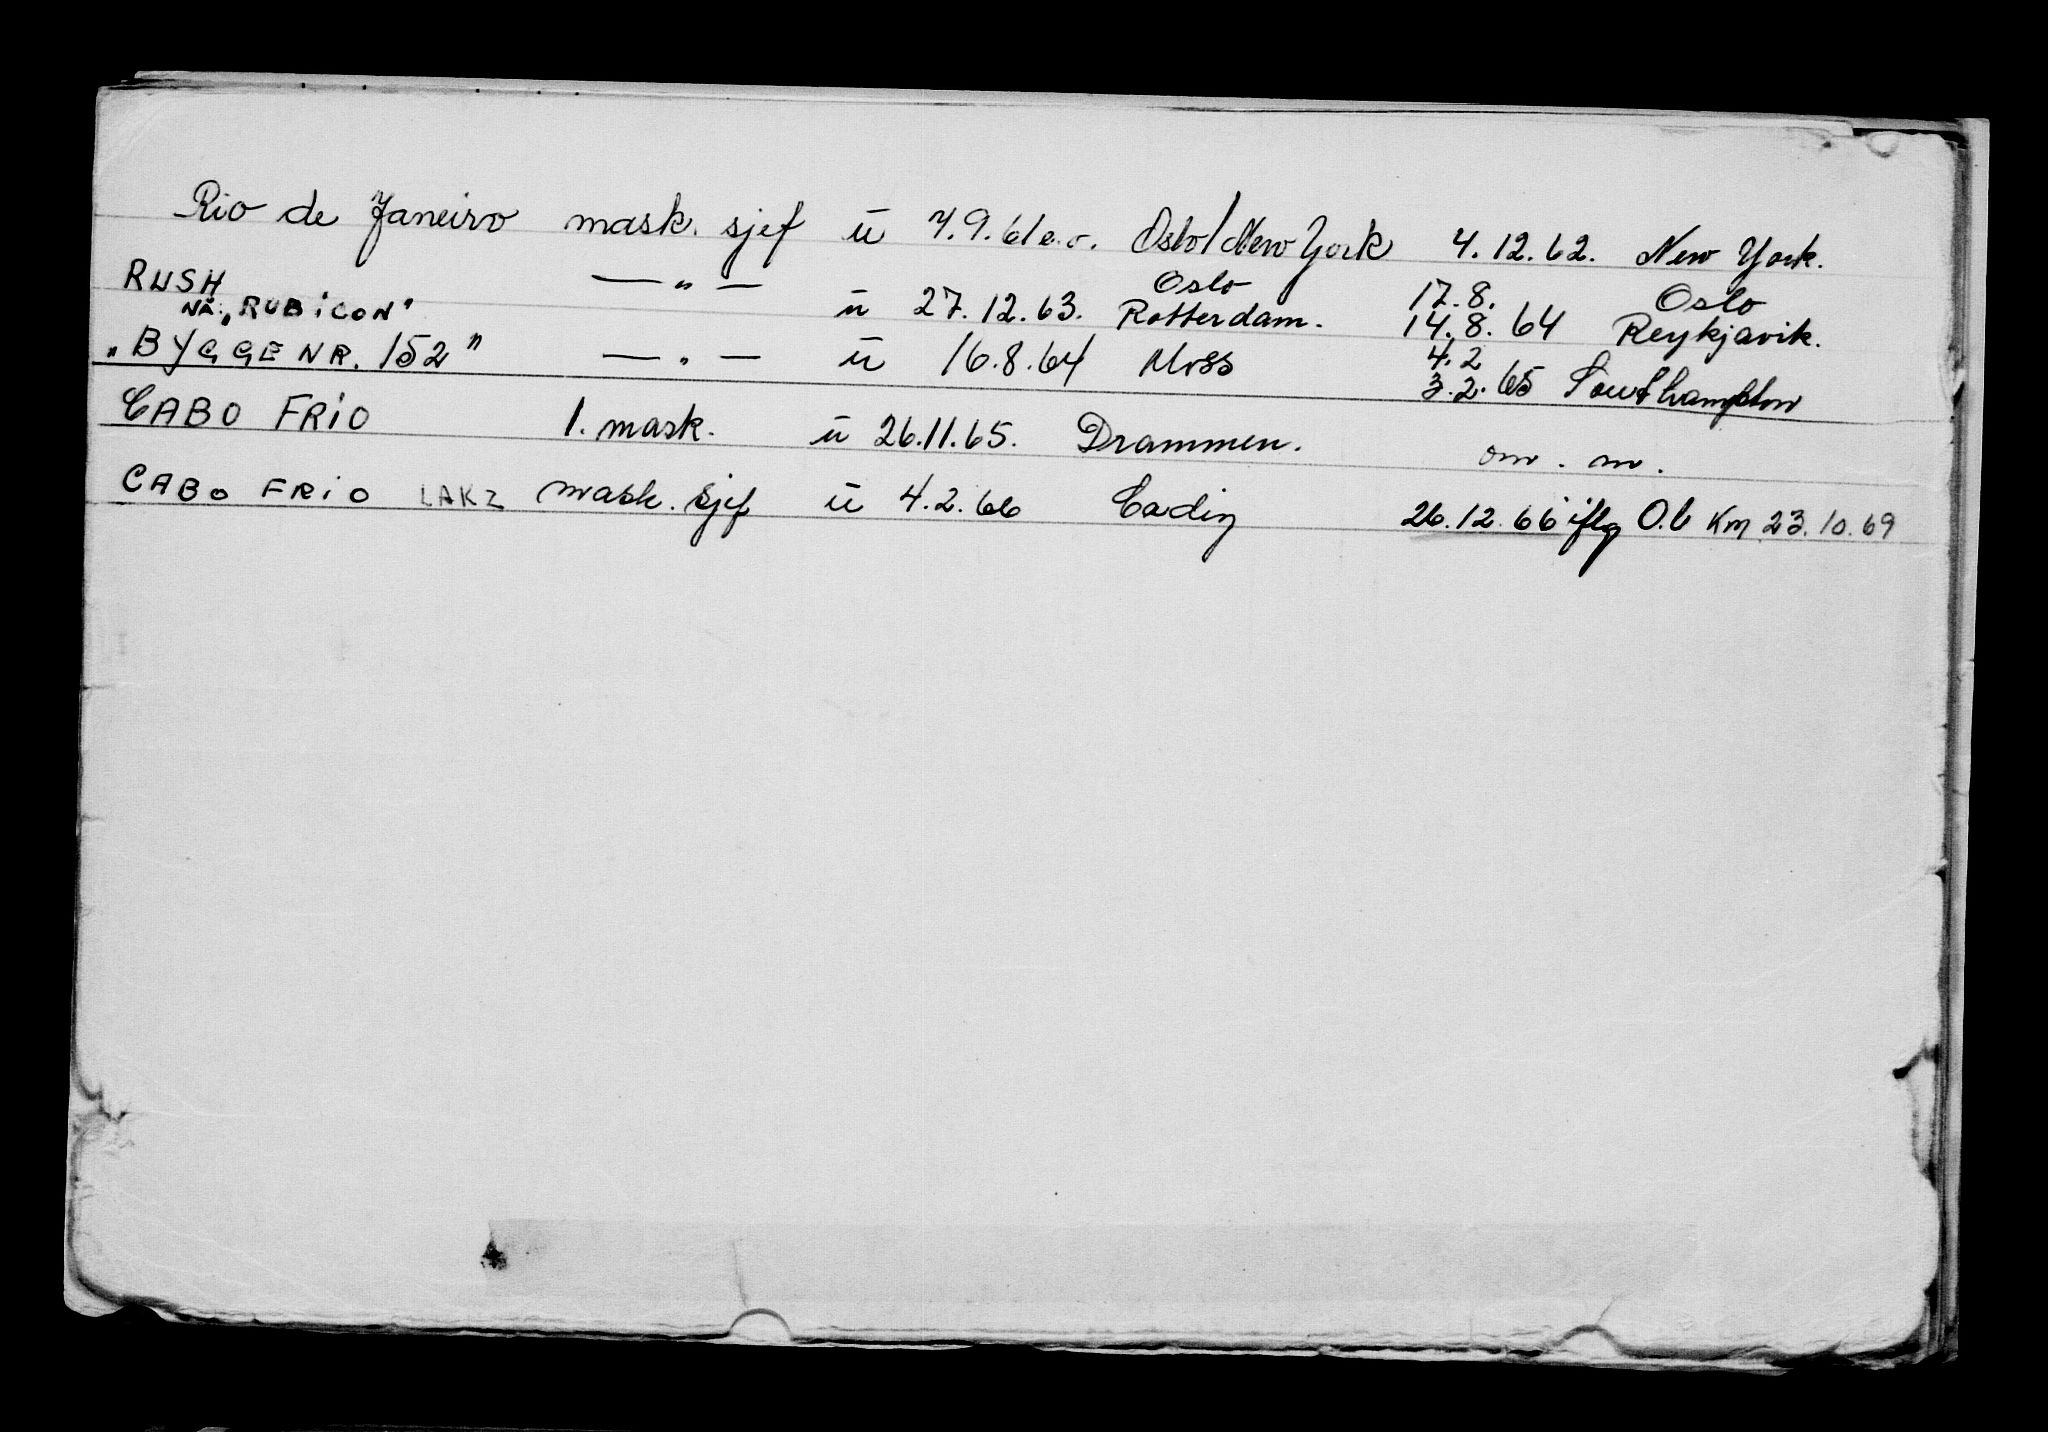 Rio de Janeiro mask. sjef ū 7.9.61 e.o. Oslo/New York 4.12.62. New York.
RUSH — " — Oslo 17.8. Oslo
NÅ: „RUBiCON" ū 27.12.63. Rotterdam. 14.8.64 Reykjavik.
„BYGGENR. 152" — " — ū 16.8.64 Moss 4.2
3.2.65 Southampton
CABO FRIO 1. mask. ū 26.11.65. Drammen. om. m.
CABO FRIO LAKZ mask. sjef ū 4.2.66 Cadiz 26.12.66 iflg O.b Km 23.10.69